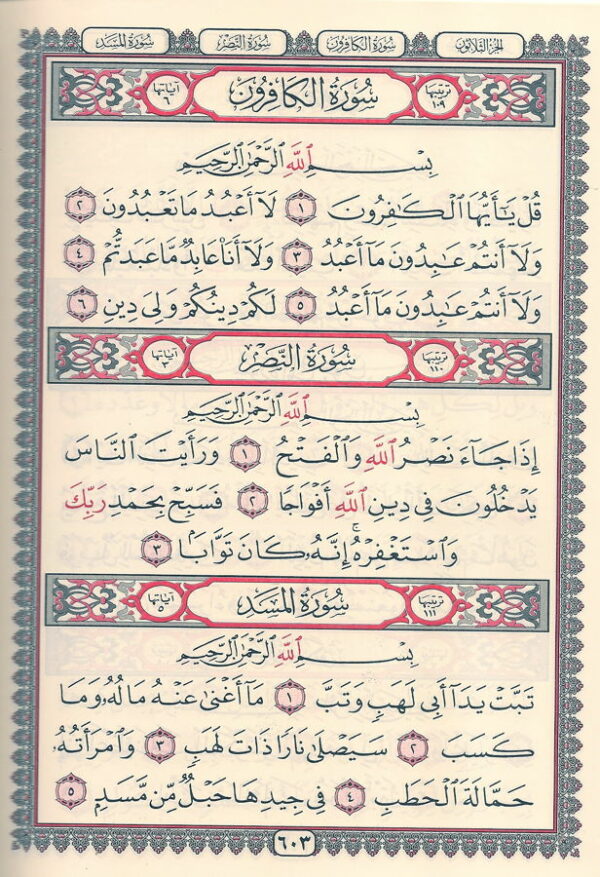 الجزء الثلاثون
سورة الكافرون
سورة النصر
سورة المسد
ترتيبها ١٠٩
سُورَةُ الكَافِرُونَ
آياتها ٦
بِسْمِ اللَّهِ الرَّحْمَٰنِ الرَّحِيمِ
قُلْ يَٰٓأَيُّهَا الْكَٰفِرُونَ ١ لَآ أَعْبُدُ مَا تَعْبُدُونَ ٢
وَلَآ أَنتُمْ عَٰبِدُونَ مَآ أَعْبُدُ ٣ وَلَآ أَنَا۠ عَابِدٌ مَّا عَبَدتُّمْ ٤
وَلَآ أَنتُمْ عَٰبِدُونَ مَآ أَعْبُدُ ٥ لَكُمْ دِينُكُمْ وَلِيَ دِينِ ٦
ترتيبها ١١٠
سُورَةُ النَّصْرِ
آياتها ٣
بِسْمِ اللَّهِ الرَّحْمَٰنِ الرَّحِيمِ
إِذَا جَآءَ نَصْرُ اللَّهِ وَالْفَتْحُ ١ وَرَأَيْتَ النَّاسَ
يَدْخُلُونَ فِي دِينِ اللَّهِ أَفْوَاجًا ٢ فَسَبِّحْ بِحَمْدِ رَبِّكَ
وَاسْتَغْفِرْهُ ۚ إِنَّهُۥ كَانَ تَوَّابًۢا ٣
ترتيبها ١١١
سُورَةُ المَسَدِ
آياتها ٥
بِسْمِ اللَّهِ الرَّحْمَٰنِ الرَّحِيمِ
تَبَّتْ يَدَآ أَبِي لَهَبٍ وَتَبَّ ١ مَآ أَغْنَىٰ عَنْهُ مَالُهُۥ وَمَا
كَسَبَ ٢ سَيَصْلَىٰ نَارًا ذَاتَ لَهَبٍ ٣ وَامْرَأَتُهُۥ
حَمَّالَةَ الْحَطَبِ ٤ فِي جِيدِهَا حَبْلٌ مِّن مَّسَدٍۭ ٥
٦٠٣